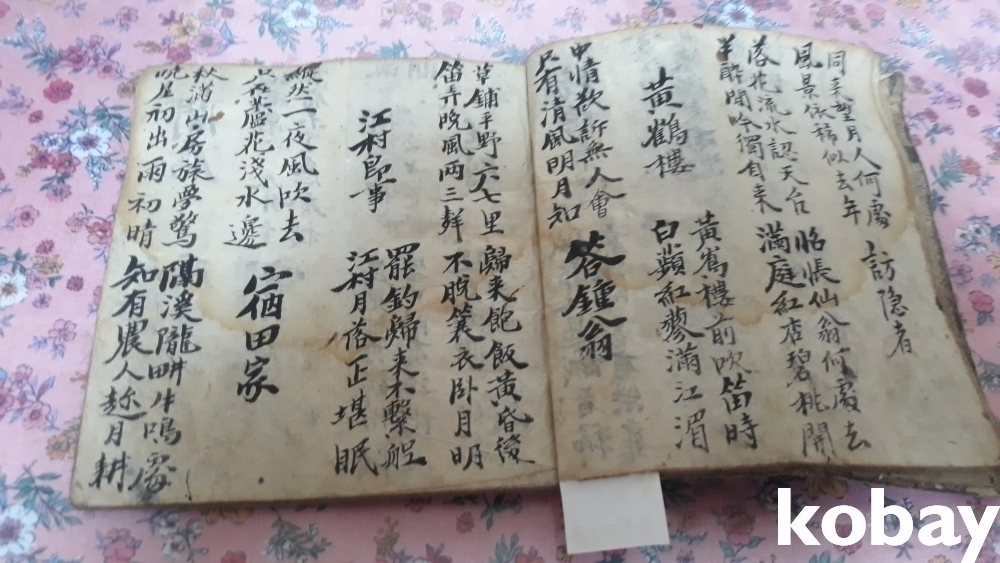 同来望月人何處
風景依稀似去年
訪隱者
落花流水認天台
半醉閒吟獨自来
怊悵仙翁何處去
滿庭紅店碧桃開
黃鶴樓
黃鶴樓前吹笛時
白蘋紅蓼滿江湄
中情欲訴無人會
只有清風明月知
答鍾翁
草鋪平野六七里
笛弄晚風兩三聲
歸来飽飯黃昏後
不脫簑衣卧月明
江村即事
罷釣歸来不繫舩
江村月落正堪眠
縱然一夜風吹去
只在蘆花淺水邊
宿田家
秋滿山房旅夢驚
晩星初出雨初晴
隔溪隴畔牛鳴處
知有農人趂月耕
kobay